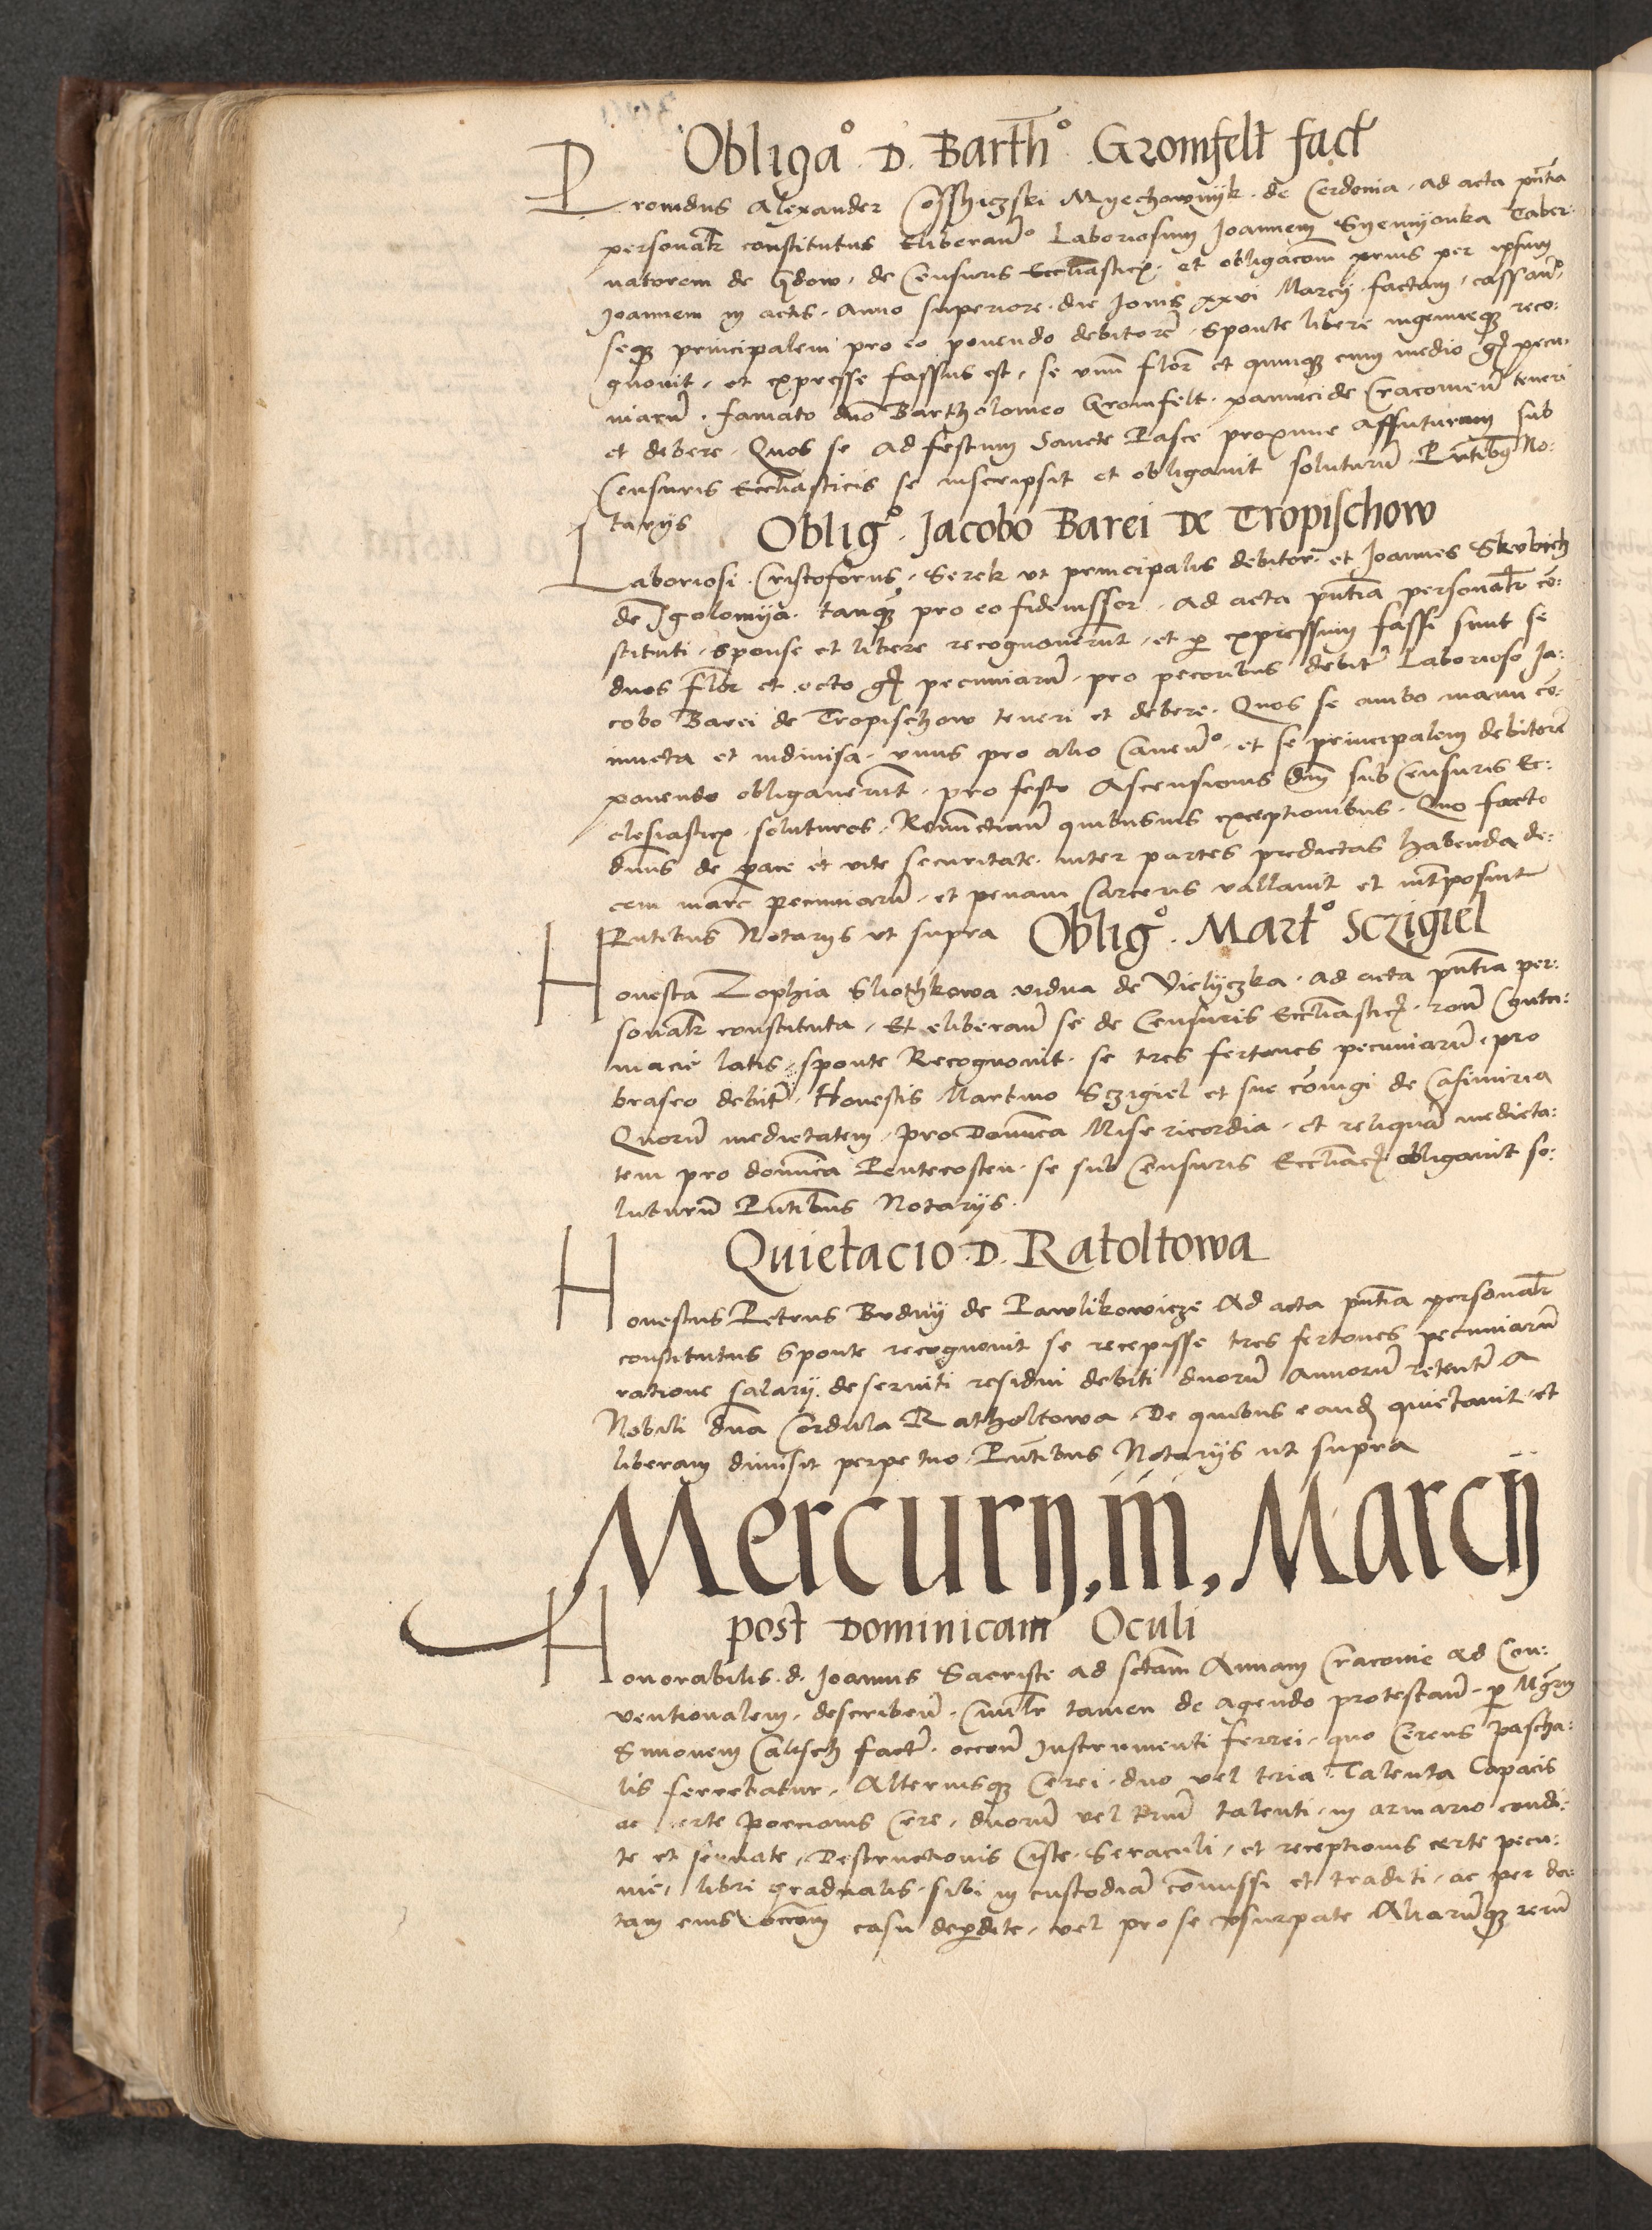 Obliga͞o D. Barth͞o Gromfelt fact͞
Prouidus Alexander Cosshiczski Myechownyk de Cerdonia ad acta pn͞tia
personal͞r constitutus eliberan͞o Laboriosum Joannem Syemyonka Taber:
natorem de Gdow, de Censuris Eccl͞iasticis et obligaco͞nm prius per ipsum
Joannem in actis Anno superiore die Jouis xxvi Marcij factam, cassan͞o
seq3 principalem pro eo ponendo debitore͞ sponte libere ingenueq3 reco:
gnouit, et expresse fassus est, se vnu͞ flor͞ et quinq3 cum medio gr͞ pecu:
niaru͞ famato dn͞o Bartholomeo Gromfelt pannicide Cracouien͞ teneri
et debere. Quos se ad festum Sancte Pasce proxime affuturam sub
Censuris Eccl͞iasticis se inscripsit et obligauit soluturu͞ Pn͞tibus No:
tarijs Oblig͞o Jacobo Barei De Tropischow
Laboriosi Cristoforus Serek vt principalis debitor et Joannes Skubich
de Igolomya tanq3 pro eo fideiussor ad acta pn͞tia personal͞r co͞:
stituti, sponse et libere recognouerunt, et p͞ expressum fassi sunt se
duos flor͞ et octo gr͞ pecuniaru͞ pro pecoribus debit͞ Laborioso Ja:
cobo Barei de Tropischow teneri et debere. Quos se ambo manu co͞:
iuncta et indiuisa, vnus pro alio Cauen͞o et se principalem debitore͞
ponendo obligauerunt, pro festo Ascensionis dn͞i sub Censuris Ec:
clesiasticis soluturos, Renunctian͞ quibusuis exceptionibus. Quo facto
dn͞us de pace et vite securitate inter partes predictas habenda de:
cem marc͞ pecuniaru͞, et penam Carceris vallauit et int͞posuit
Pntibus Notarijs vt supra Oblig͞o Mart͞o Sczigiel
Honesta Zophia Sliothkowa vidua de Vielyczka ad acta pn͞tia per:
sonal͞r constituta, Et eliberan͞ se de Censuris Eccl͞iasticis ron͞e Contu:
macie latis, sponte Recognouit se tres fertones pecuniaru͞ pro
braseo debit͞ Honestis Martino Sczigiel et sue co͞iugi de Casimiria
Quoru͞ medietatem, pro Domi͞ca Misericordia, et reliqua͞ medieta:
tem pro domi͞ca Pentecosten se sub Censuris Eccl͞iacis obligauit so:
luturu͞ Pntibus Notarijs.
Quietacio D. Ratoltowa
Honestus Petrus Budny de Pawlikowicze Ad acta pn͞tia personal͞r
constitutus sponte recognouit se recepisse tres fertones pecuniaru͞
ratione salarij deseruiti residui debiti duoru͞ Annoru͞ retent͞ A
Nobili dn͞a Cordula Ratholtowa. De quibus eand͞ quietauit et
liberam dimisit perpetuo Pn͞tibus Notarijs ut supra
Mercurij, iii, Marcij
post Dominicam Oculi
Honorabilis d. Joannis Sacriste ad sctam Annam Cracouie ad Con:
uentionalem, describen͞ Cumul͞r tamen de agendo protestan͞ p͞ Mgr͞m
Simonem Calisch fact͞ occon͞e Instrumenti ferrei, quo Cereus pascha:
lis ferrebatur, Alteriusq3 Cerei duo vel tria Talenta Capacis
ac certe porcionis Cere, duoru͞ vel triu͞ talenti in armario condi:
te et seruate, Destructionis Ciste Seraculi, et receptionis certe pecu:
nie, libri gradualis sibi in custodia͞ co͞missi et traditi, ac per da:
tam eius occo͞nem casu dep͞dite, vel pro se vsurpate Aliaru͞q3 reru͞